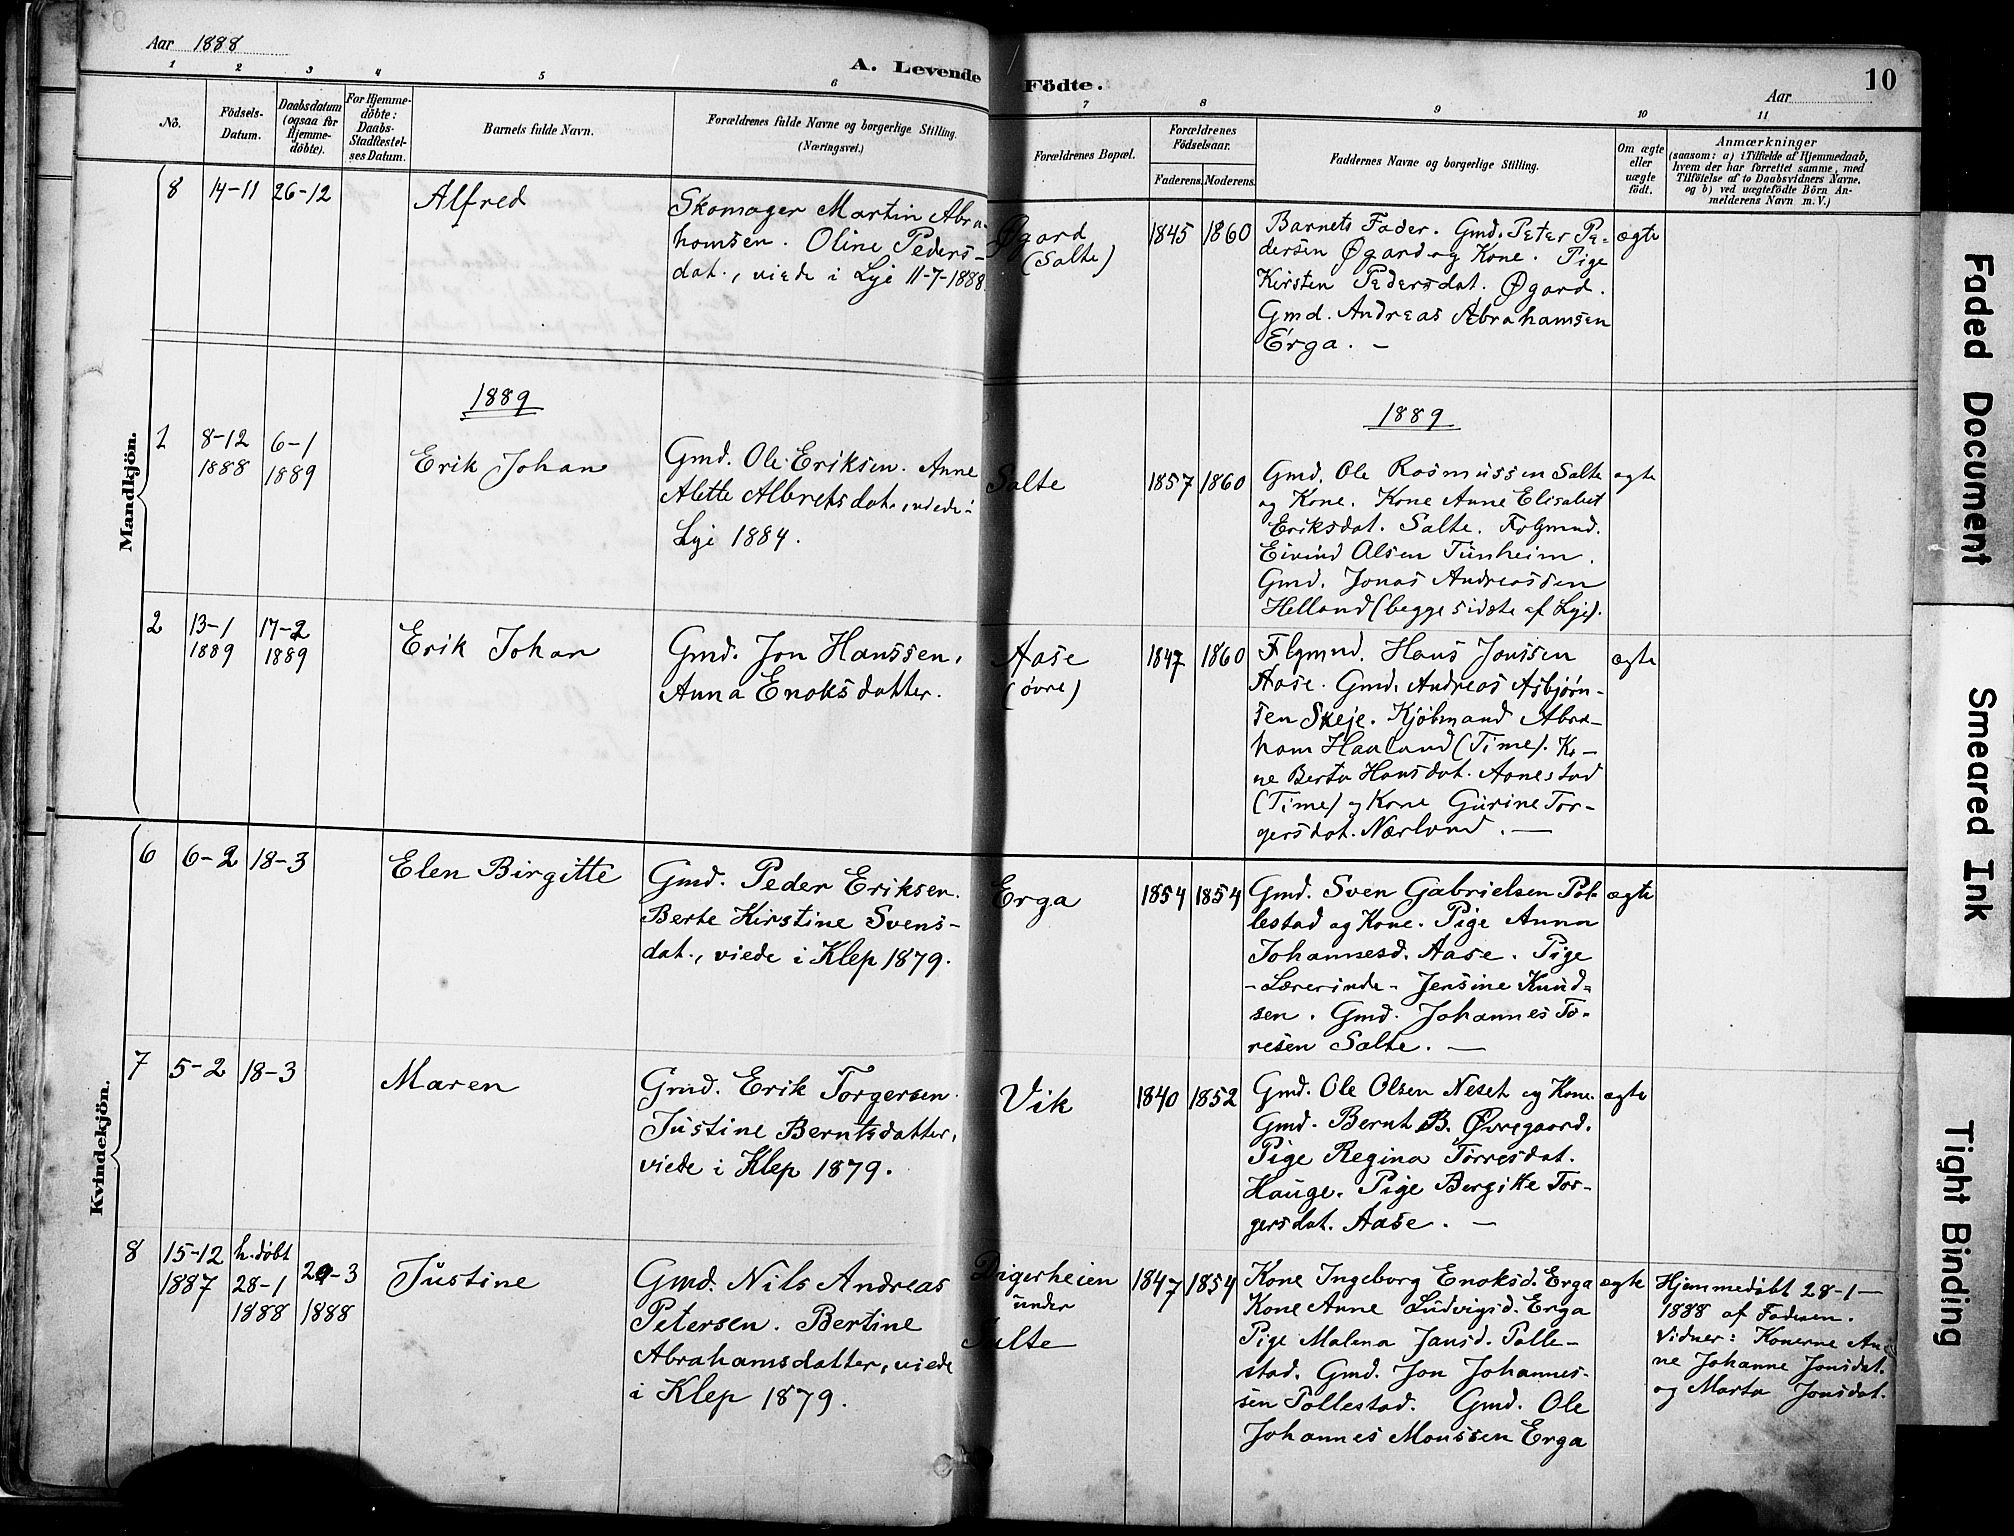 Aar 1888
A. Levende Födte.
Aar
10
1 2 3 4 5 6 7 8 9 10 11
No.
Födsels-
Datum.
Daabsdatum
(ogsaa for
Hjemme-
döbte).
For Hjemme-
döbte:
Daabs-
Stadfæstel-
ses Datum.
Barnets fulde Navn.
Forældrenes fulde Navne og borgerlige Stilling.
(Næringsvei.)
Forældrenes Bopæl.
Forældrenes
Födselsaar.
Faderens. Moderens.
Faddernes Navne og borgerlige Stilling.
Om ægte
eller
uægte
födt.
Anmærkninger
(saasom: a) i Tilfælde af Hjemmedaab,
hvem der har forrettet samme, med
Tilföielse af to Daabsvidners Navne,
og b) ved uægtefödte Börn An-
melderens Navn m. V.)
Mandkjön.
8 14-11 26-12 Alfred
Skomager Martin Abra-
hamsen. Oline Peders-
dat., viede i Lye 11-7-1888.
Øgard
(Salte)
1845 1860
Barnets Fader. Gmd. Peter Pe-
dersen Øgard og Kone. Pige
Kirsten Pedersdat. Øgard.
Gmd. Andreas Abrahamsen
Erga. -
ægte
1889
1889
1 8-12
1888
6-1
1889
Erik Johan
Gmd. Ole Eriksen. Anne
Alette Albretsdat., viede i
Lye 1884.
Salte
1857 1860
Gmd. Ole Rasmussen Salte
og Kone. Kone Anne Elisabet
Eriksdat. Salte. Fhv. Gmd.
Eivind Olsen Tunheim.
Gmd. Jonas Andreassen
Helland (begge sidste af Lye).
ægte
2 13-1
1889
17-2
1889
Erik Johan
Gmd. Jon Hanssen.
Anna Enoksdatter.
Aase
(øvre)
1847 1860
Hans Jonssen
Aase. Gmd. Andreas Asbjørn-
sen Skeje. Kjøbmand Abra-
ham Haaland (Time). Ko-
ne Berta Hansdat. Aanestad
(Time) og Kone Gurine Tor-
gersdat. Nærland. —
ægte
Kvindekjön.
6 6-2 18-3 Elen Birgitte
Gmd. Peder Eriksen.
Berte Kirstine Svens-
dat., viede i Klep 1879.
Erga
1854 1854
Gmd. Sven Gabrielsen Pol-
lestad og Kone. Pige Anna
Johannesd. Aase. Pige
- Lærerinde - Jensine Knud-
sen. Gmd. Johannes To-
resen Salte. —
ægte
7 5-2 18-3 Maren
Gmd. Erik Torgersen.
Justine Berntsdatter,
viede i Klep 1879.
Vik
1840 1852
Gmd. Ole Olsen Neset og Kone.
Gmd. Bernt B. Øvregaard.
Pige Regina Torresdat.
Hauge. Pige Bergitte Tor-
gersdat. Aase. —
ægte
8 15-12
1887
h.døbt
28-1
1888
29-3
1888
Justine
Gmd. Nils Andreas
Petersen. Bertine
Abrahamsdatter, viede
i Klep 1879.
Digerheien
under
Salte
1847 1854
Kone Ingeborg Enoksd. Erga
Kone Anne Ludvigsd. Erga
Pige Malena Jansd. Polle-
stad. Gmd. Jon Johannes-
sen Pollestad. Gmd. Ole
Johannes Monssen Erga
ægte
Hjemmedøbt 28-1-
1888 af Faderen.
Vidner: Konerne An-
ne Johanne Jonsdat.
og Marta Jonsdat.
Faded Document
Smeared Ink
Tight Binding